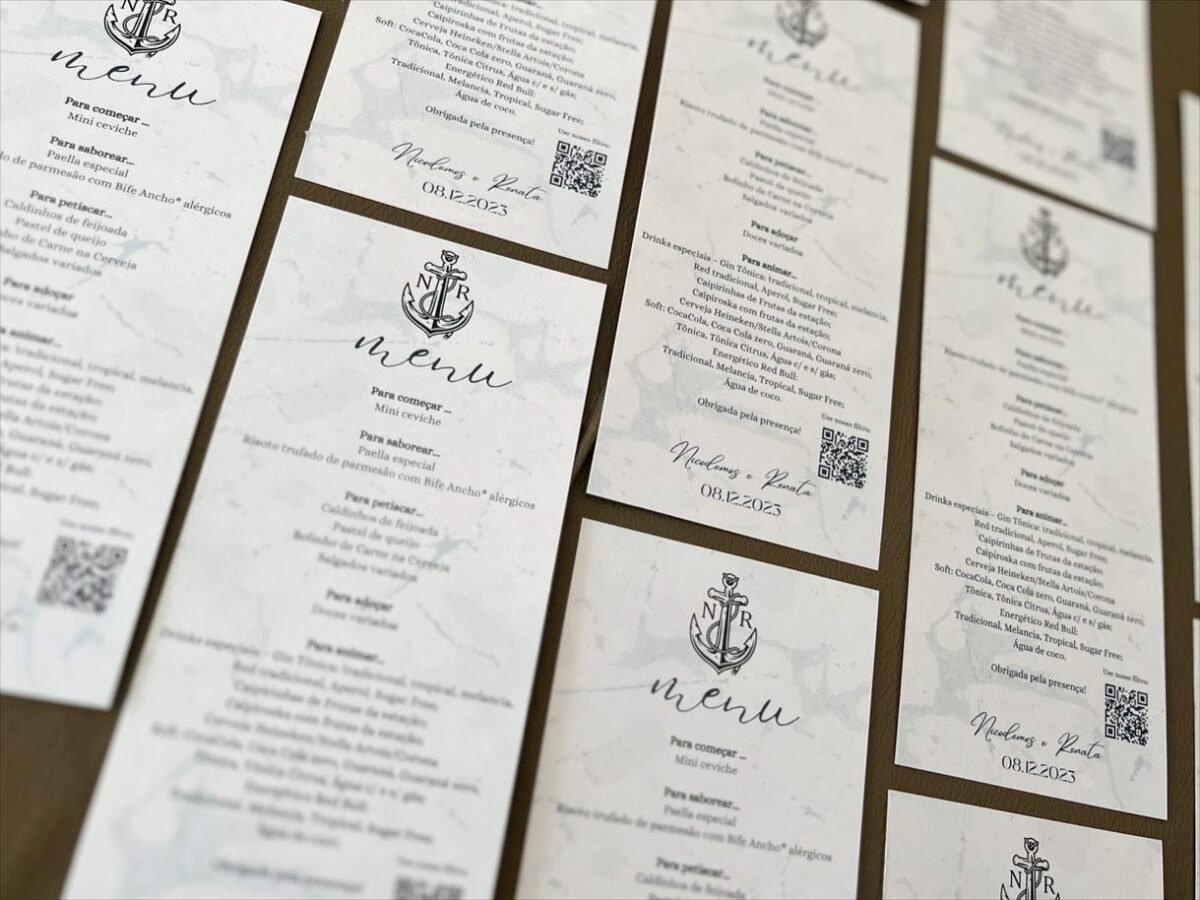 NR
menu
Para começar ...
Mini ceviche
Para saborear...
Paella especial
do de parmesão com Bife Ancho* alérgicos
Para petiscar...
Caldinhos de feijoada
Pastel de queijo
de Carne na Cerveja
Salgados variados
Para adoçar
Doces variados
tradicional, tropical, melancia,
Aperol, Sugar Free;
frutas da estação;
Artois/Corona
Guaraná, Guaraná zero,
c/ e s/ gás;
Bull:
Sugar Free;
Use nosso filtro:
tradicional, tropical, melancia,
Caipirinhas de Frutas da estação;
Caipiroska com frutas da estação;
Cerveja Heineken/Stella Artois/Corona
Soft: CocaCola, Coca Cola zero, Guaraná, Guaraná zero,
Tônica, Tônica Citrus, Água c/ e s/ gás;
Energético Red Bull:
Tradicional, Melancia, Tropical, Sugar Free;
Água de coco.
Obrigada pela presença!
Use nosso filtro:
Nicodemos e Renata
08.12.2023
NR
menu
Para começar ...
Mini ceviche
Para saborear...
Paella especial
Risoto trufado de parmesão com Bife Ancho* alérgicos
Para petiscar...
Caldinhos de feijoada
Pastel de queijo
Bolinho de Carne na Cerveja
Salgados variados
Para adoçar
Doces variados
Para animar...
Drinks especiais – Gin Tônica: tradicional, tropical, melancia,
Red tradicional, Aperol, Sugar Free;
Caipirinhas de Frutas da estação;
Caipiroska com frutas da estação;
Cerveja Heineken/Stella Artois/Corona
Soft: CocaCola, Coca Cola zero, Guaraná, Guaraná zero,
Tônica, Tônica Citrus, Água c/ e s/ gás;
Energético Red Bull:
Tradicional, Melancia, Tropical, Sugar Free;
Água de coco.
Obrigada pela presença!
menu
Para saborear...
Paella especial
Risoto trufado de parmesão com Bife Ancho* alérgicos
Para petiscar...
Caldinhos de feijoada
Pastel de queijo
Bolinho de Carne na Cerveja
Salgados variados
Para adoçar
Doces variados
Para animar...
Drinks especiais – Gin Tônica: tradicional, tropical, melancia,
Red tradicional, Aperol, Sugar Free;
Caipirinhas de Frutas da estação;
Caipiroska com frutas da estação;
Cerveja Heineken/Stella Artois/Corona
Soft: CocaCola, Coca Cola zero, Guaraná, Guaraná zero,
Tônica, Tônica Citrus, Água c/ e s/ gás;
Energético Red Bull:
Tradicional, Melancia, Tropical, Sugar Free;
Água de coco.
Obrigada pela presença!
Use nosso filtro:
Nicodemos e Renata
08.12.2023
NR
menu
Para começar ...
Mini ceviche
Para saborear...
Paella especial
Risoto trufado de parmesão com Bife Ancho* alérgicos
Para petiscar...
Caldinhos de feijoada
NR
menu
Para saborear...
Paella especial
Risoto trufado de parmesão com Bife Ancho* alérgicos
Para petiscar...
Caldinhos de feijoada
Pastel de queijo
Bolinho de Carne na Cerveja
Salgados variados
Para adoçar
Doces variados
Para animar...
Drinks especiais – Gin Tônica: tradicional, tropical, melancia,
Red tradicional, Aperol, Sugar Free;
Caipirinhas de Frutas da estação;
Caipiroska com frutas da estação;
Cerveja Heineken/Stella Artois/Corona
Soft: CocaCola, Coca Cola zero, Guaraná, Guaraná zero,
Tônica, Tônica Citrus, Água c/ e s/ gás;
Energético Red Bull:
Tradicional, Melancia, Tropical, Sugar Free;
Água de coco.
Obrigada pela presença!
Use nosso filtro:
Nicodemos e Renata
08.12.2023
NR